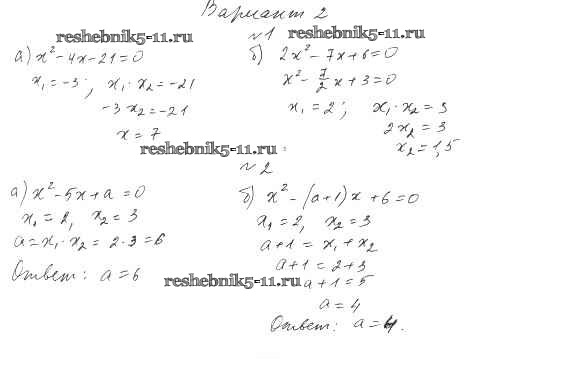 Вариант 2
reshebnik5-11.ru
reshebnik5-11.ru
№1
а) x² - 4x - 21 = 0
x₁ = -3; x₁ · x₂ = -21
-3x₂ = -21
x = 7
б) 2x² - 7x + 6 = 0
x² - 7/2 x + 3 = 0
x₁ = 2; x₁ · x₂ = 3
2x₂ = 3
x₂ = 1,5
reshebnik5-11.ru
№2
а) x² - 5x + a = 0
x₁ = 2, x₂ = 3
a = x₁ · x₂ = 2 · 3 = 6
Ответ: a = 6
б) x² - (a+1)x + 6 = 0
x₁ = 2, x₂ = 3
a + 1 = x₁ + x₂
a + 1 = 2 + 3
a + 1 = 5
a = 4
Ответ: a = 4.
reshebnik5-11.ru